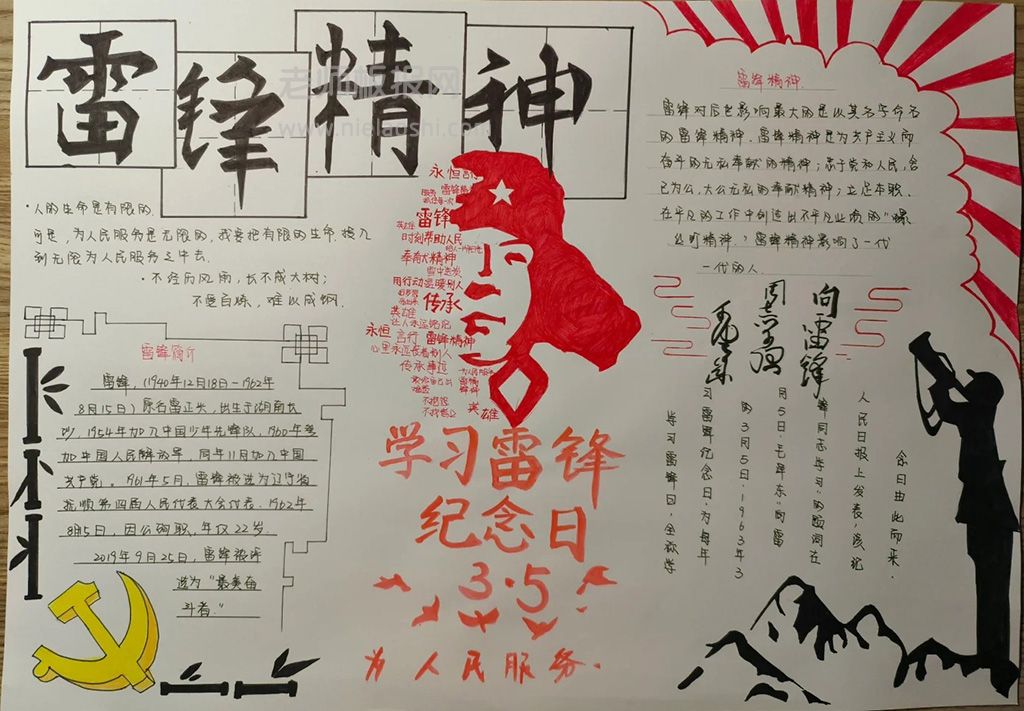 雷锋精神
老师板报网
www.nielaoshi.cn
·人的生命是有限的.
可是,为人民服务是无限的,我要把有限的生命.投入
到无限为人民服务之中去.
·不经历风雨,长不成大树;
不受百炼,难以成钢.
雷锋简介
雷锋,(1940年12月18日-1962年
8月15日)原名雷正兴,出生于湖南长
沙,1954年加入中国少年先锋队,1960年参
加中国人民解放军,同年11月加入中国
共产党。1961年5月,雷锋被选为辽宁省
抚顺第四届人民代表大会代表.1962年
8月5日,因公殉职,年仅22岁.
2019年9月25日,雷锋被评
选为"最美奋
斗者."
永恒
雷锋
时刻帮助人民
奉献精神
雪中送炭
用行动温暖别人
传承
英雄
永恒 言行 雷锋精神
心里永远装着别人
传承事迹
英雄
学习雷锋
纪念日
3·5
为人民服务.
雷锋精神.
雷锋对后世影响最大的是以其名字命名
的雷锋精神.雷锋精神是为共产主义而
奋斗的无私奉献的精神;忠于党和人民,舍
己为公,大公无私的奉献精神;立足本职.
在平凡的工作中创造出不平凡业绩的"螺
丝钉精神."雷锋精神影响了一代
一代的人.
向雷锋
同志学习
毛泽东
学习雷锋日,全称学
习雷锋纪念日,为每年
的3月5日.1963年3
月5日.毛泽东"向雷
锋同志学习"的题词在
人民日报上发表,该纪
念日由此而来.